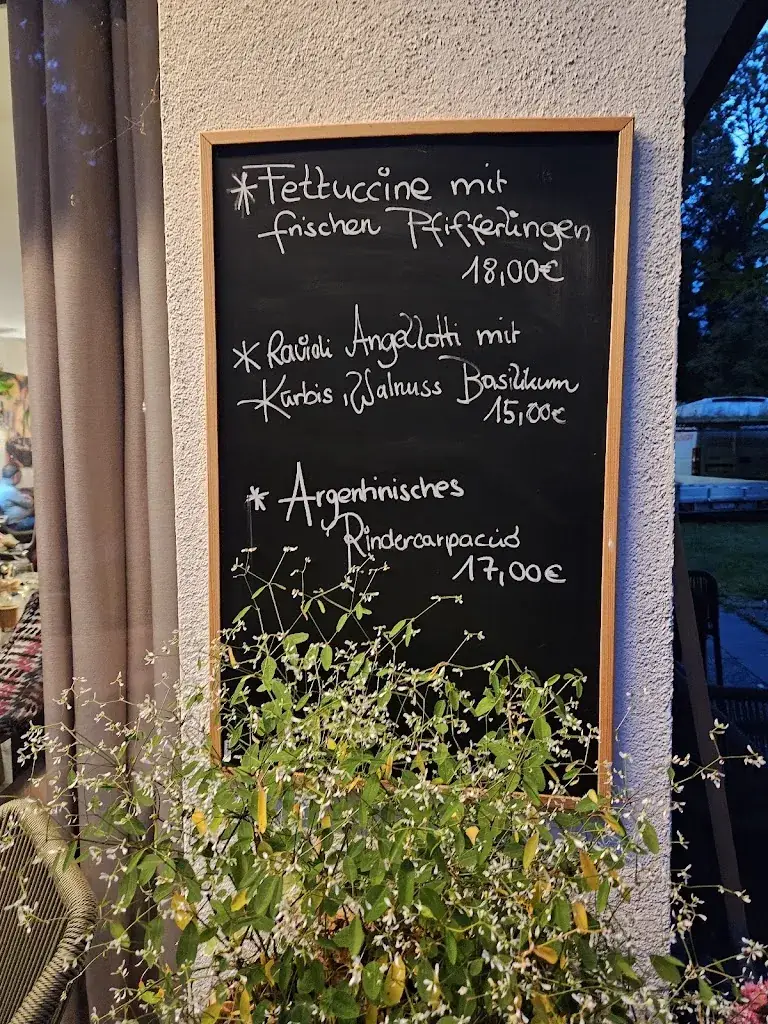 *Fettuccine mit
frischen Pfifferlingen
18,00€
*Ravioli Angellotti mit
Kürbis, Walnuss Basilikum
15,00€
* Argentinisches
Rindercarpaccio
17,00€